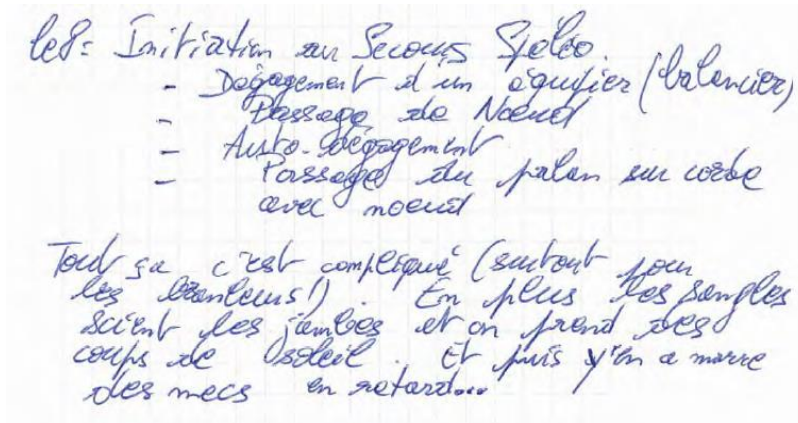 le 8 = Initiation au Secours Spéléo.
- Dégagement d'un équipier (balancier)
- Passage de Noeud
- Auto-dégagement
- Passage du palan sur corde
avec noeud
Tout ça c'est compliqué (surtout pour
les branleurs!). En plus les sangles
scient les jambes et on prend des
coups de soleil. Et puis y'en a marre
des mecs en retard...